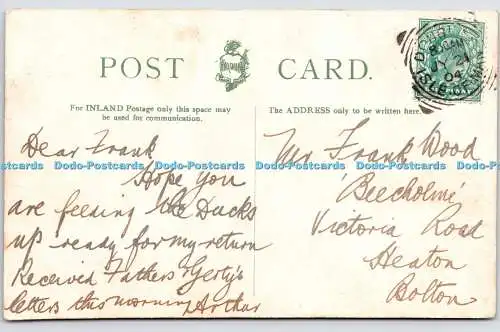 POST CARD.
For INLAND Postage only this space may
be used for communication.
The ADDRESS only to be written here.
Dear Frank
Hope you
are feeding the Ducks
up ready for my return
Received Fathers & Gerty's
letters this morning Arthur
Mr Frank Wood
'Beecholme'
Victoria Road
Heaton
Bolton
Dodo-Postcards Dodo-Postcards Dodo-Postcards Dodo-Postcards Dodo-Postcards